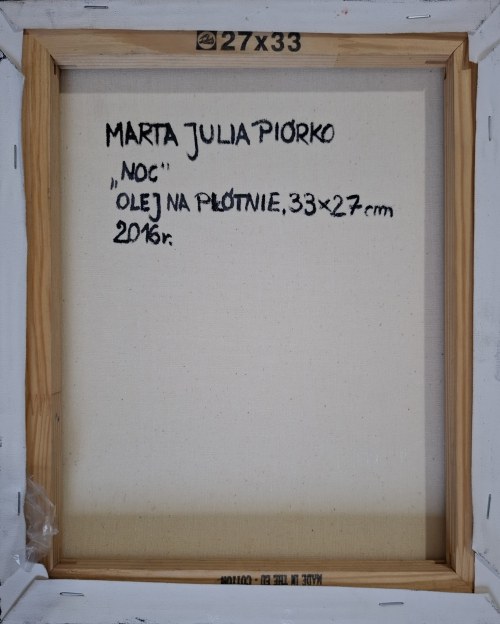 27x33
MARTA JULIA PIÓRKO
„NOC“
OLEJ NA PŁÓTNIE, 33x27cm
2016r.
MADE IN THE EU - COTTON